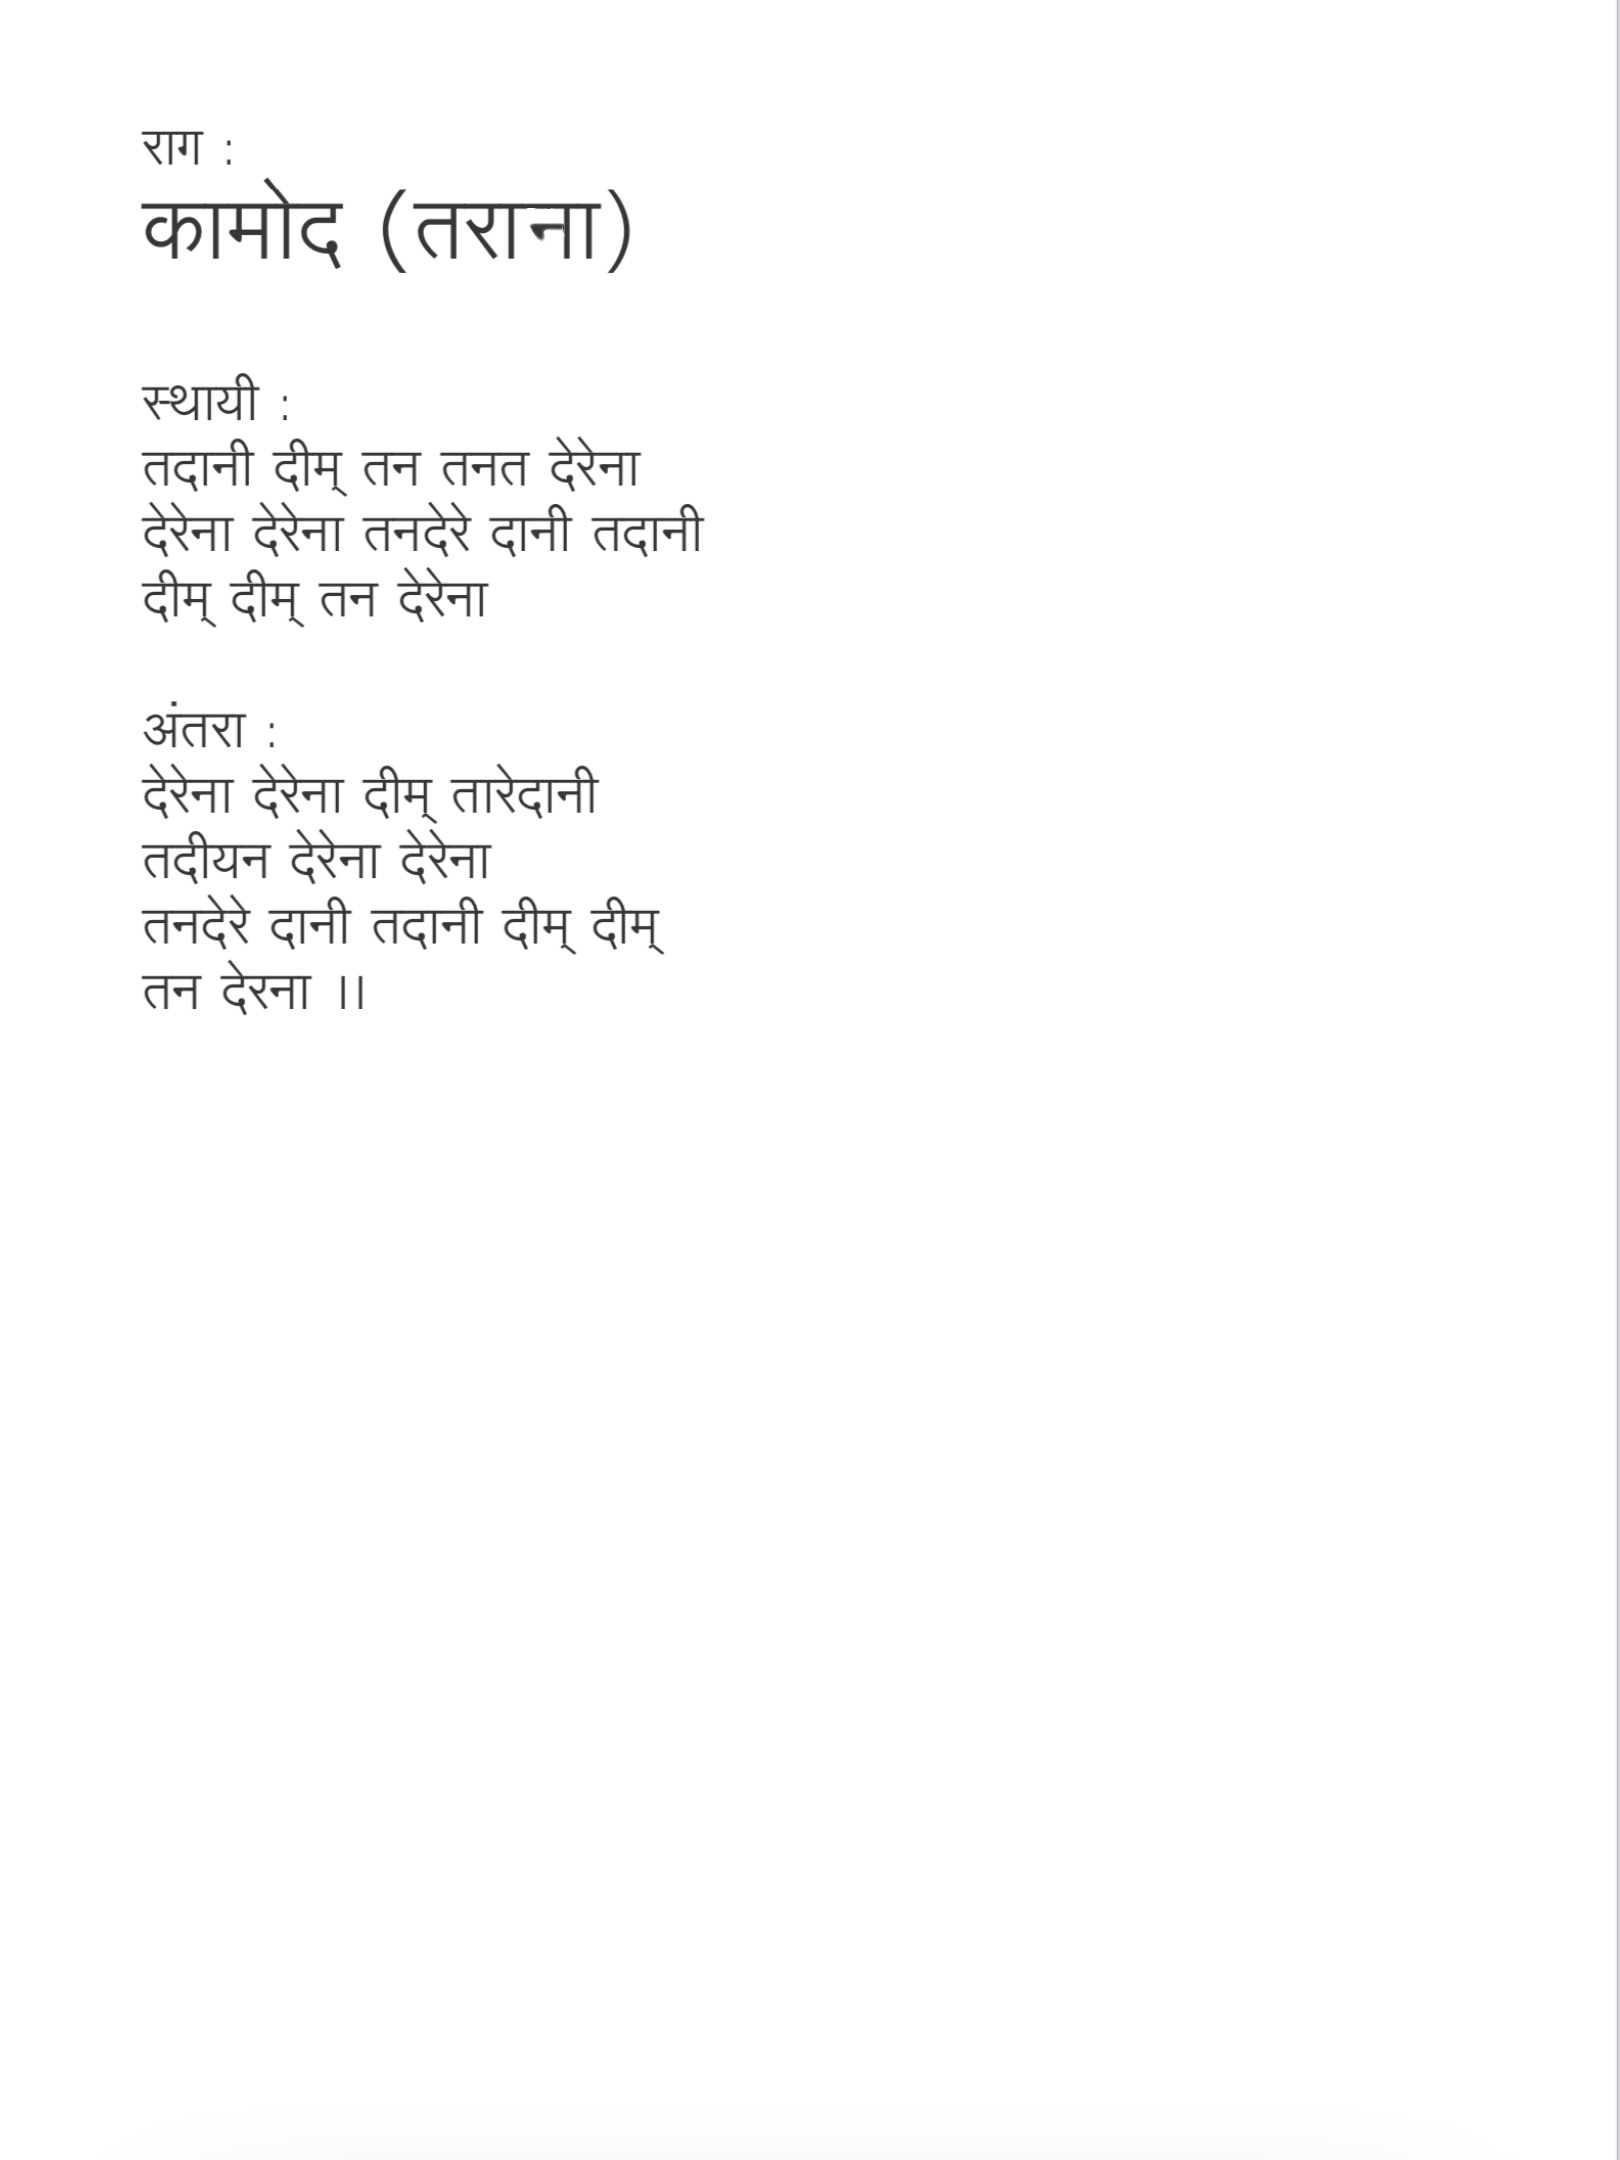 राग :
कामोद (तराना)
स्थायी :
तदानी दीम् तन तनत देरेना
देरेना देरेना तनदेरे दानी तदानी
दीम् दीम् तन देरेना
अंतरा :
देरेना देरेना दीम् तारेदानी
तदीयन देरेना देरेना
तनदेरे दानी तदानी दीम् दीम्
तन देरना ।।